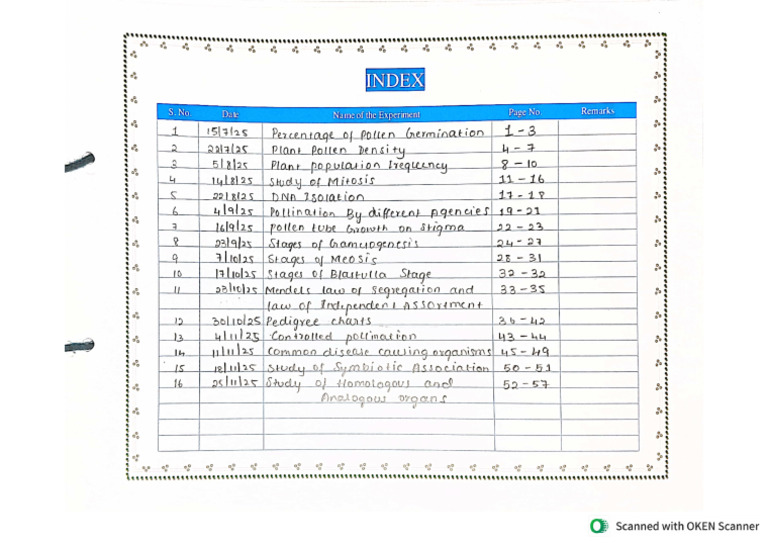 INDEX
S. No. Date Name of the Experiment Page No. Remarks
1 15/7/25 Percentage of Pollen Germination 1 - 3
2 22/7/25 Plant Pollen Density 4 - 7
3 5/8/25 Plant population frequency 8 - 10
4 14/8/25 Study of Mitosis 11 - 16
5 22/8/25 DNA Isolation 17 - 18
6 4/9/25 Pollination By different Agencies 19 - 21
7 16/9/25 pollen tube Growth on Stigma 22 - 23
8 23/9/25 Stages of Gametogenesis 24 - 27
9 7/10/25 Stages of Meosis 28 - 31
10 17/10/25 Stages of Blastulla Stage 32 - 32
11 23/10/25 Mendels law of Segregation and 33 - 35
law of Independent Assortment
12 30/10/25 Pedigree charts 36 - 42
13 4/11/25 Controlled pollination 43 - 44
14 11/11/25 Common disease causing organisms 45 - 49
15 18/11/25 Study of Symbiotic Association 50 - 51
16 25/11/25 Study of Homologous and 52 - 57
Analogous organs
Scanned with OKEN Scanner